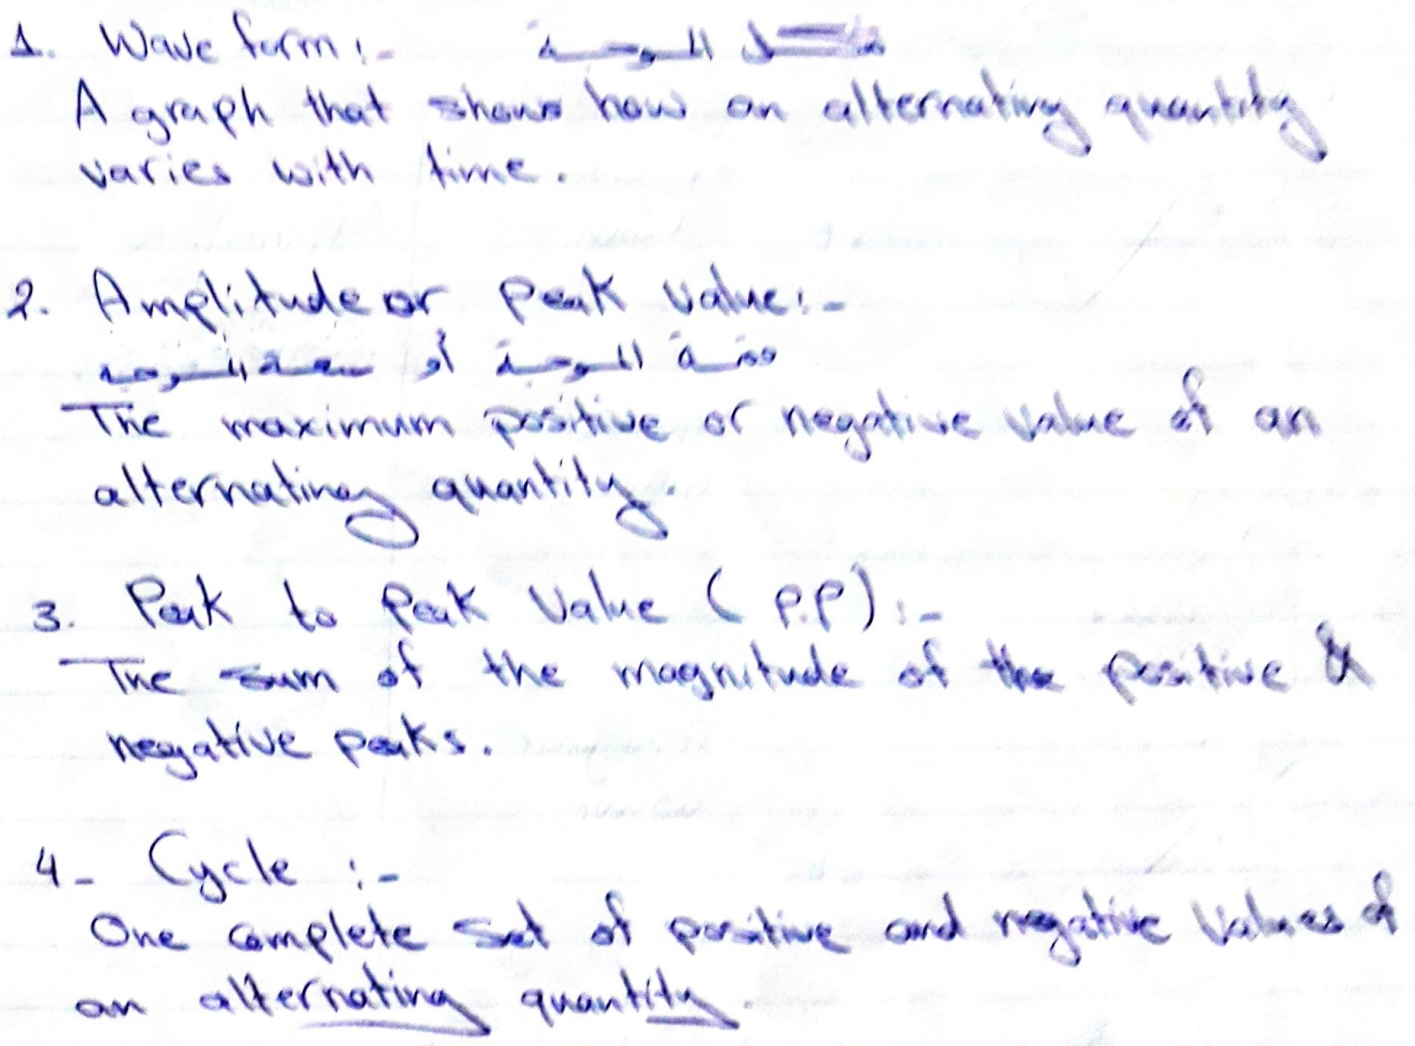 1. Wave form :- شكل الموجة
A graph that shows how an alternating quantity
varies with time.
2. Amplitude or Peak Value :-
قمة الموجة أو سعة الموجة
The maximum positive or negative value of an
alternating quantity.
3. Peak to Peak Value ( P.P) :-
The sum of the magnitude of the positive &
negative peaks.
4- Cycle :-
One complete set of positive and negative values of
an alternating quantity.